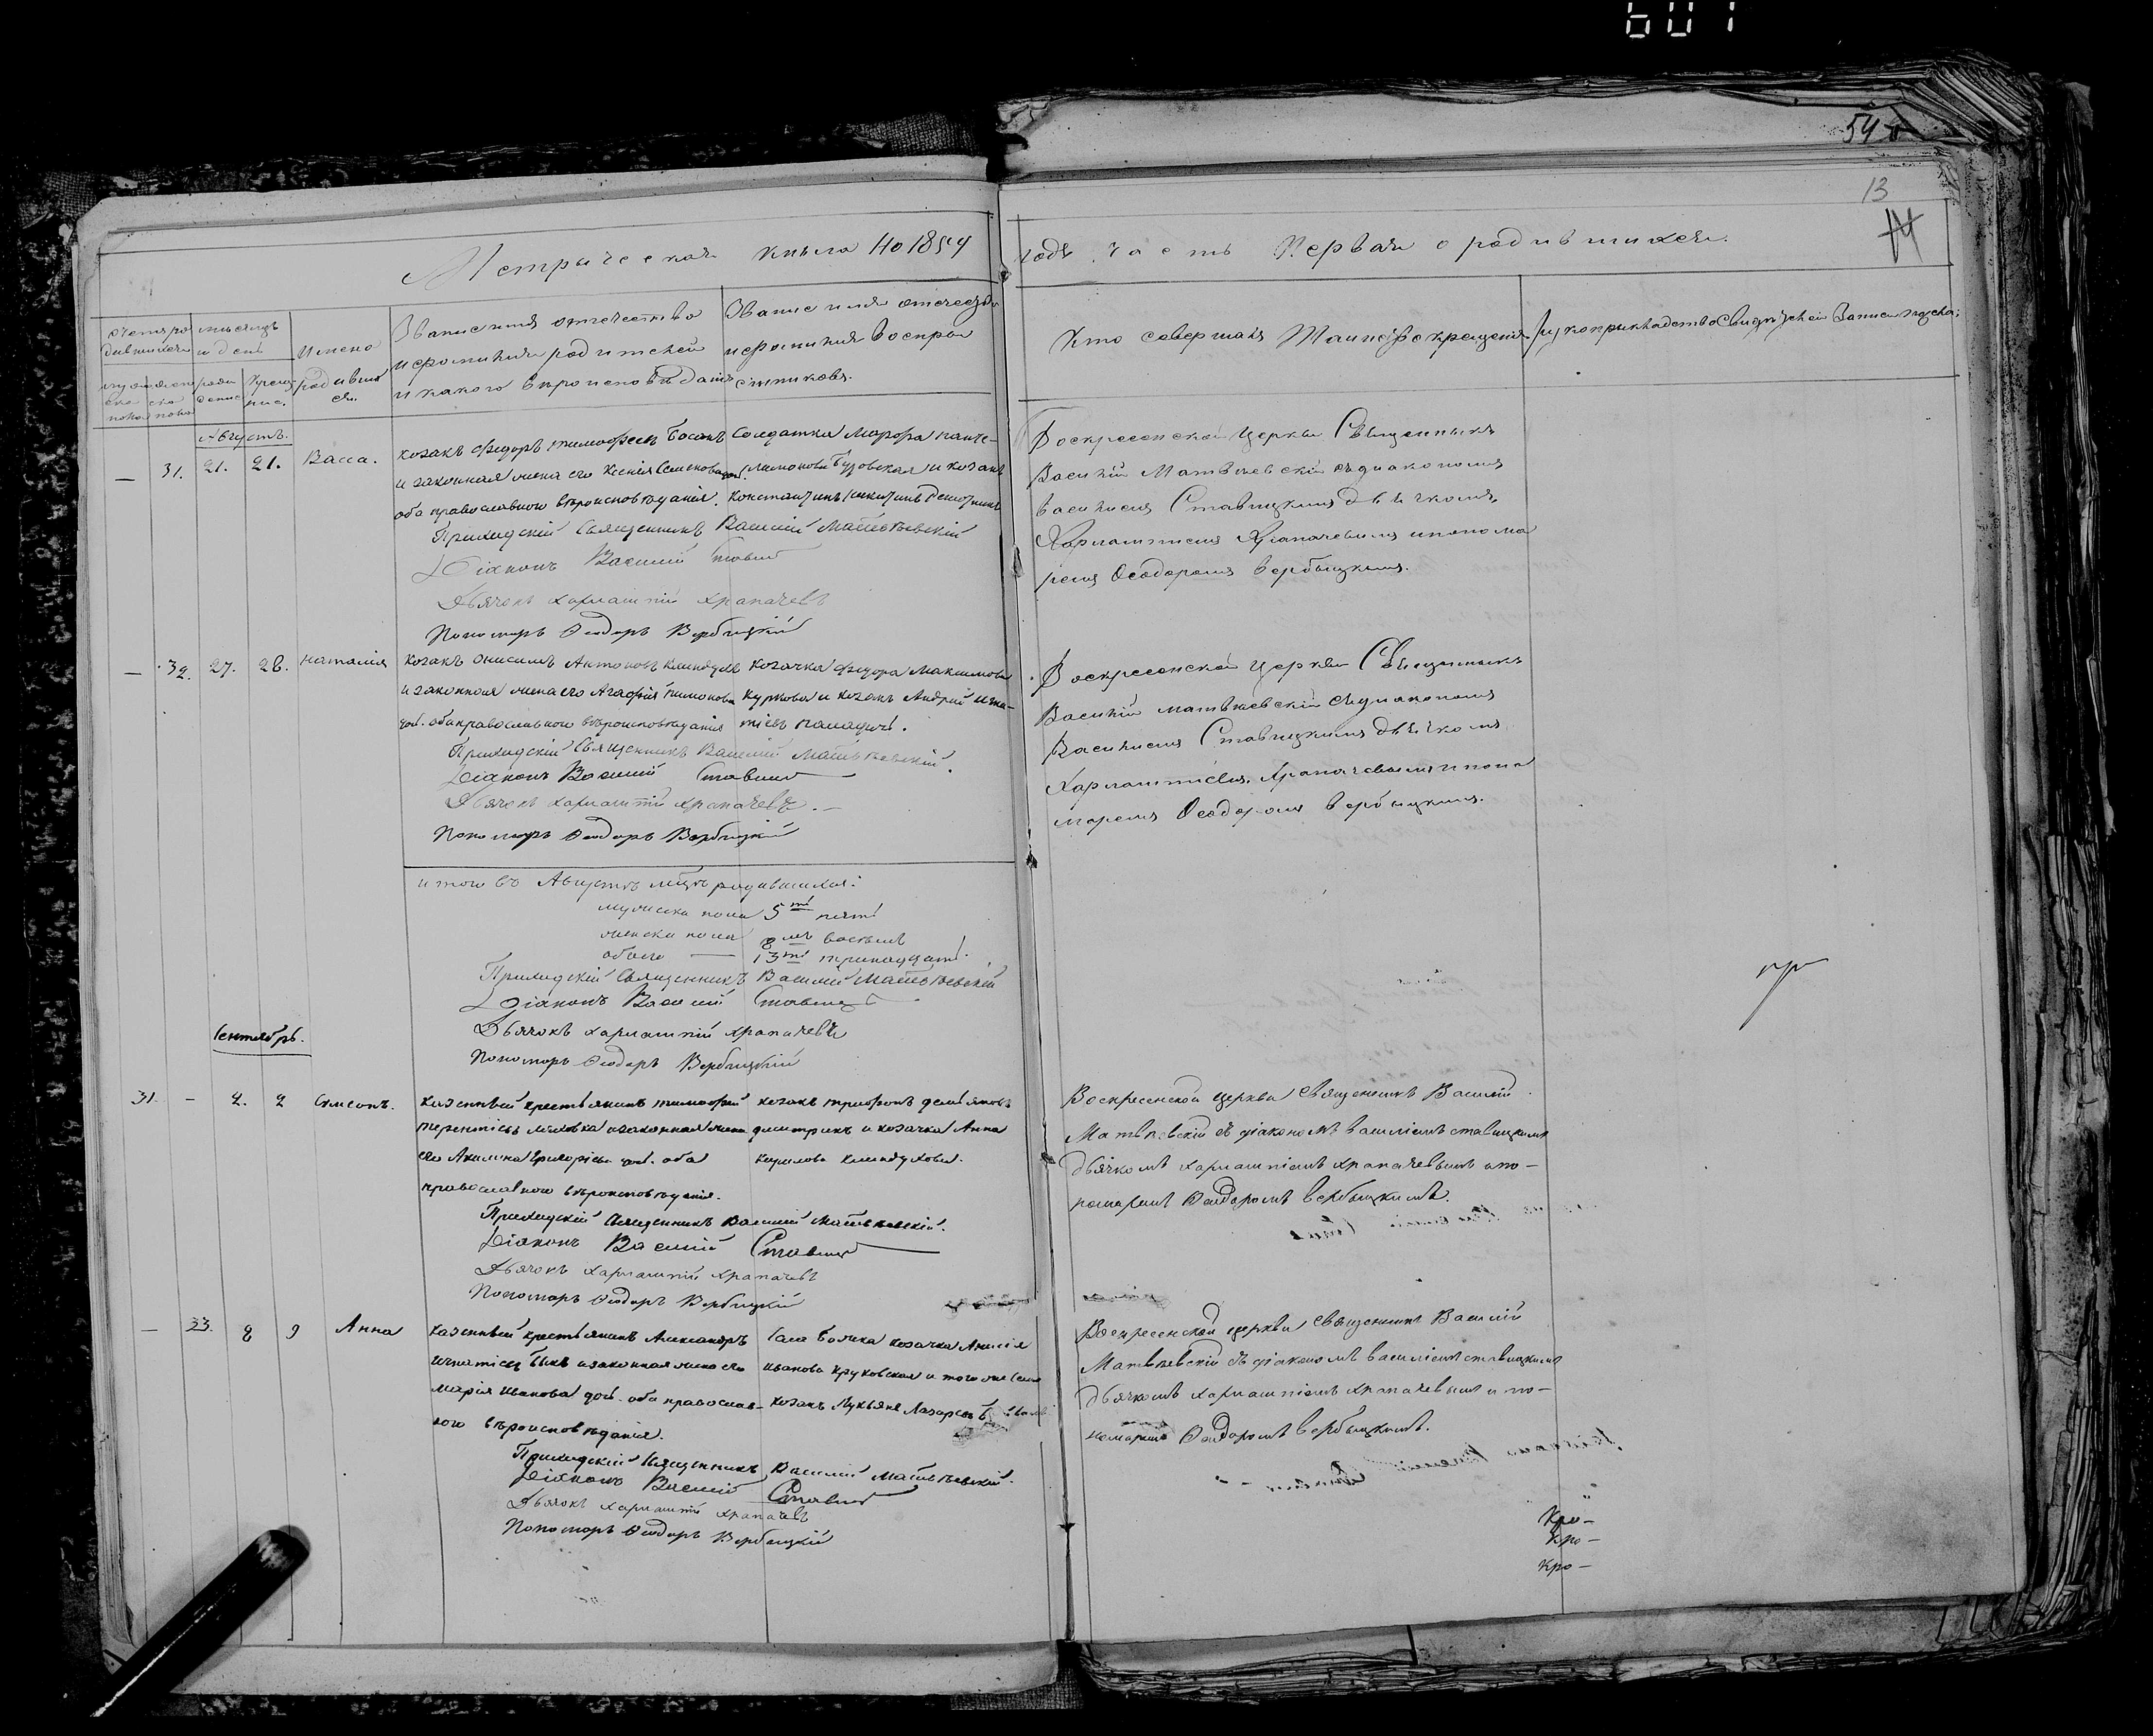 601
54
13
14
Метрическая книга на 1854 года часть первая о родившихся.
Счетъ родившихся
мѣсяцъ и день
Имена родившихся.
Званіе имя отчество и фамилія родителей и какого вѣроисповѣданія
Званіе имя отечество и фамилія воспріемниковъ.
Кто совершалъ Таинство крещенія
рукоприкладство Свидѣтелей Записи
мужеска пола
женска пола
рожденіе
крещеніе.
Августъ.
— 31. 21. 21. Васса.
козакъ Федоръ тимофеевъ
и законная жена его Ксенія Семенова доч.
оба православного вѣроисповѣданія.
Солдатка Марфа
и козакъ
Константинъ
Воскресенской Церкви Священникъ
Василій Матвѣевскій съ діакономъ
Василиемъ Ставицкимъ дьячкомъ
Харлампіемъ Храпачевымъ и понома
ремъ Феодоромъ Вербицкимъ.
Приходскій Священникъ Василій Матвѣевскій
Діаконъ Василій Ставиц
Дьячокъ Харлампій Храпачевъ
Пономарь Феодоръ Вербицкій
— 32. 27. 28. Наталія
козакъ Онисимъ Антоновъ
и законная жена его Агафія
оба православного вѣроисповѣданія
Козачка Федора Максимова
и козакъ Андрей Игна-
тіевъ
Воскресенской Церкви Священникъ
Василій Матвѣевскій съ діакономъ
Василиемъ Ставицкимъ дьячкомъ
Харлампіемъ Храпачевымъ и поно
маремъ Феодоромъ Вербицкимъ.
Приходскій Священникъ Василій Матвѣевскій.
Діаконъ Василій Ставиц
Дьячокъ Харлампій Храпачевъ. —
Пономарь Феодоръ Вербицкій
итого въ Августѣ мцѣ родившихся:
мужеска пола 5ть пять
женска пола 8мь восемь
обоего — 13ть тринадцать.
Приходскій Священникъ Василій Матвѣевскій
Діаконъ Василій Ставиц
Дьячокъ Харлампій Храпачевъ
Пономарь Феодоръ Вербицкій
Сентябрь.
31. — 2. 2 Симеонъ.
казенный крестьянинъ тимофей
терентіевъ и законная жена
его Акилина Григоріева доч. оба
православного вѣроисповѣданія.
козакъ трифонъ
и козачка Анна
Кирилова
Воскресенской церкви Священникъ Василій
Матвѣевскій съ діакономъ Василіемъ Ставицкимъ
дьячкомъ Харлампіемъ Храпачевымъ и по-
номаремъ Феодоромъ Вербицкимъ.
Приходскій Священникъ Василій Матвѣевскій.
Діаконъ Василій Ставиц
Дьячокъ Харлампій Храпачевъ
Пономарь Феодоръ Вербицкій
— 33. 8 9 Анна
казенный крестьянинъ Александръ
Игнатіевъ Быкъ и законная жена его
Марія Иванова доч. оба православ-
ного вѣроисповѣданія.
козачка Анисія
Иванова Круковская и того же села
козакъ Лукьянъ Лазаревъ
Воскресенской церкви Священникъ Василій
Матвѣевскій съ діакономъ Василіемъ Ставицкимъ
дьячкомъ Харлампіемъ Храпачевымъ и по-
номаремъ Феодоромъ Вербицкимъ.
Приходскій Священникъ Василій Матвѣевскій.
Діаконъ Василій Ставиц
Дьячокъ Харлампій Храпачевъ
Пономарь Феодоръ Вербицкій
Кро-
Кро-
Кро-